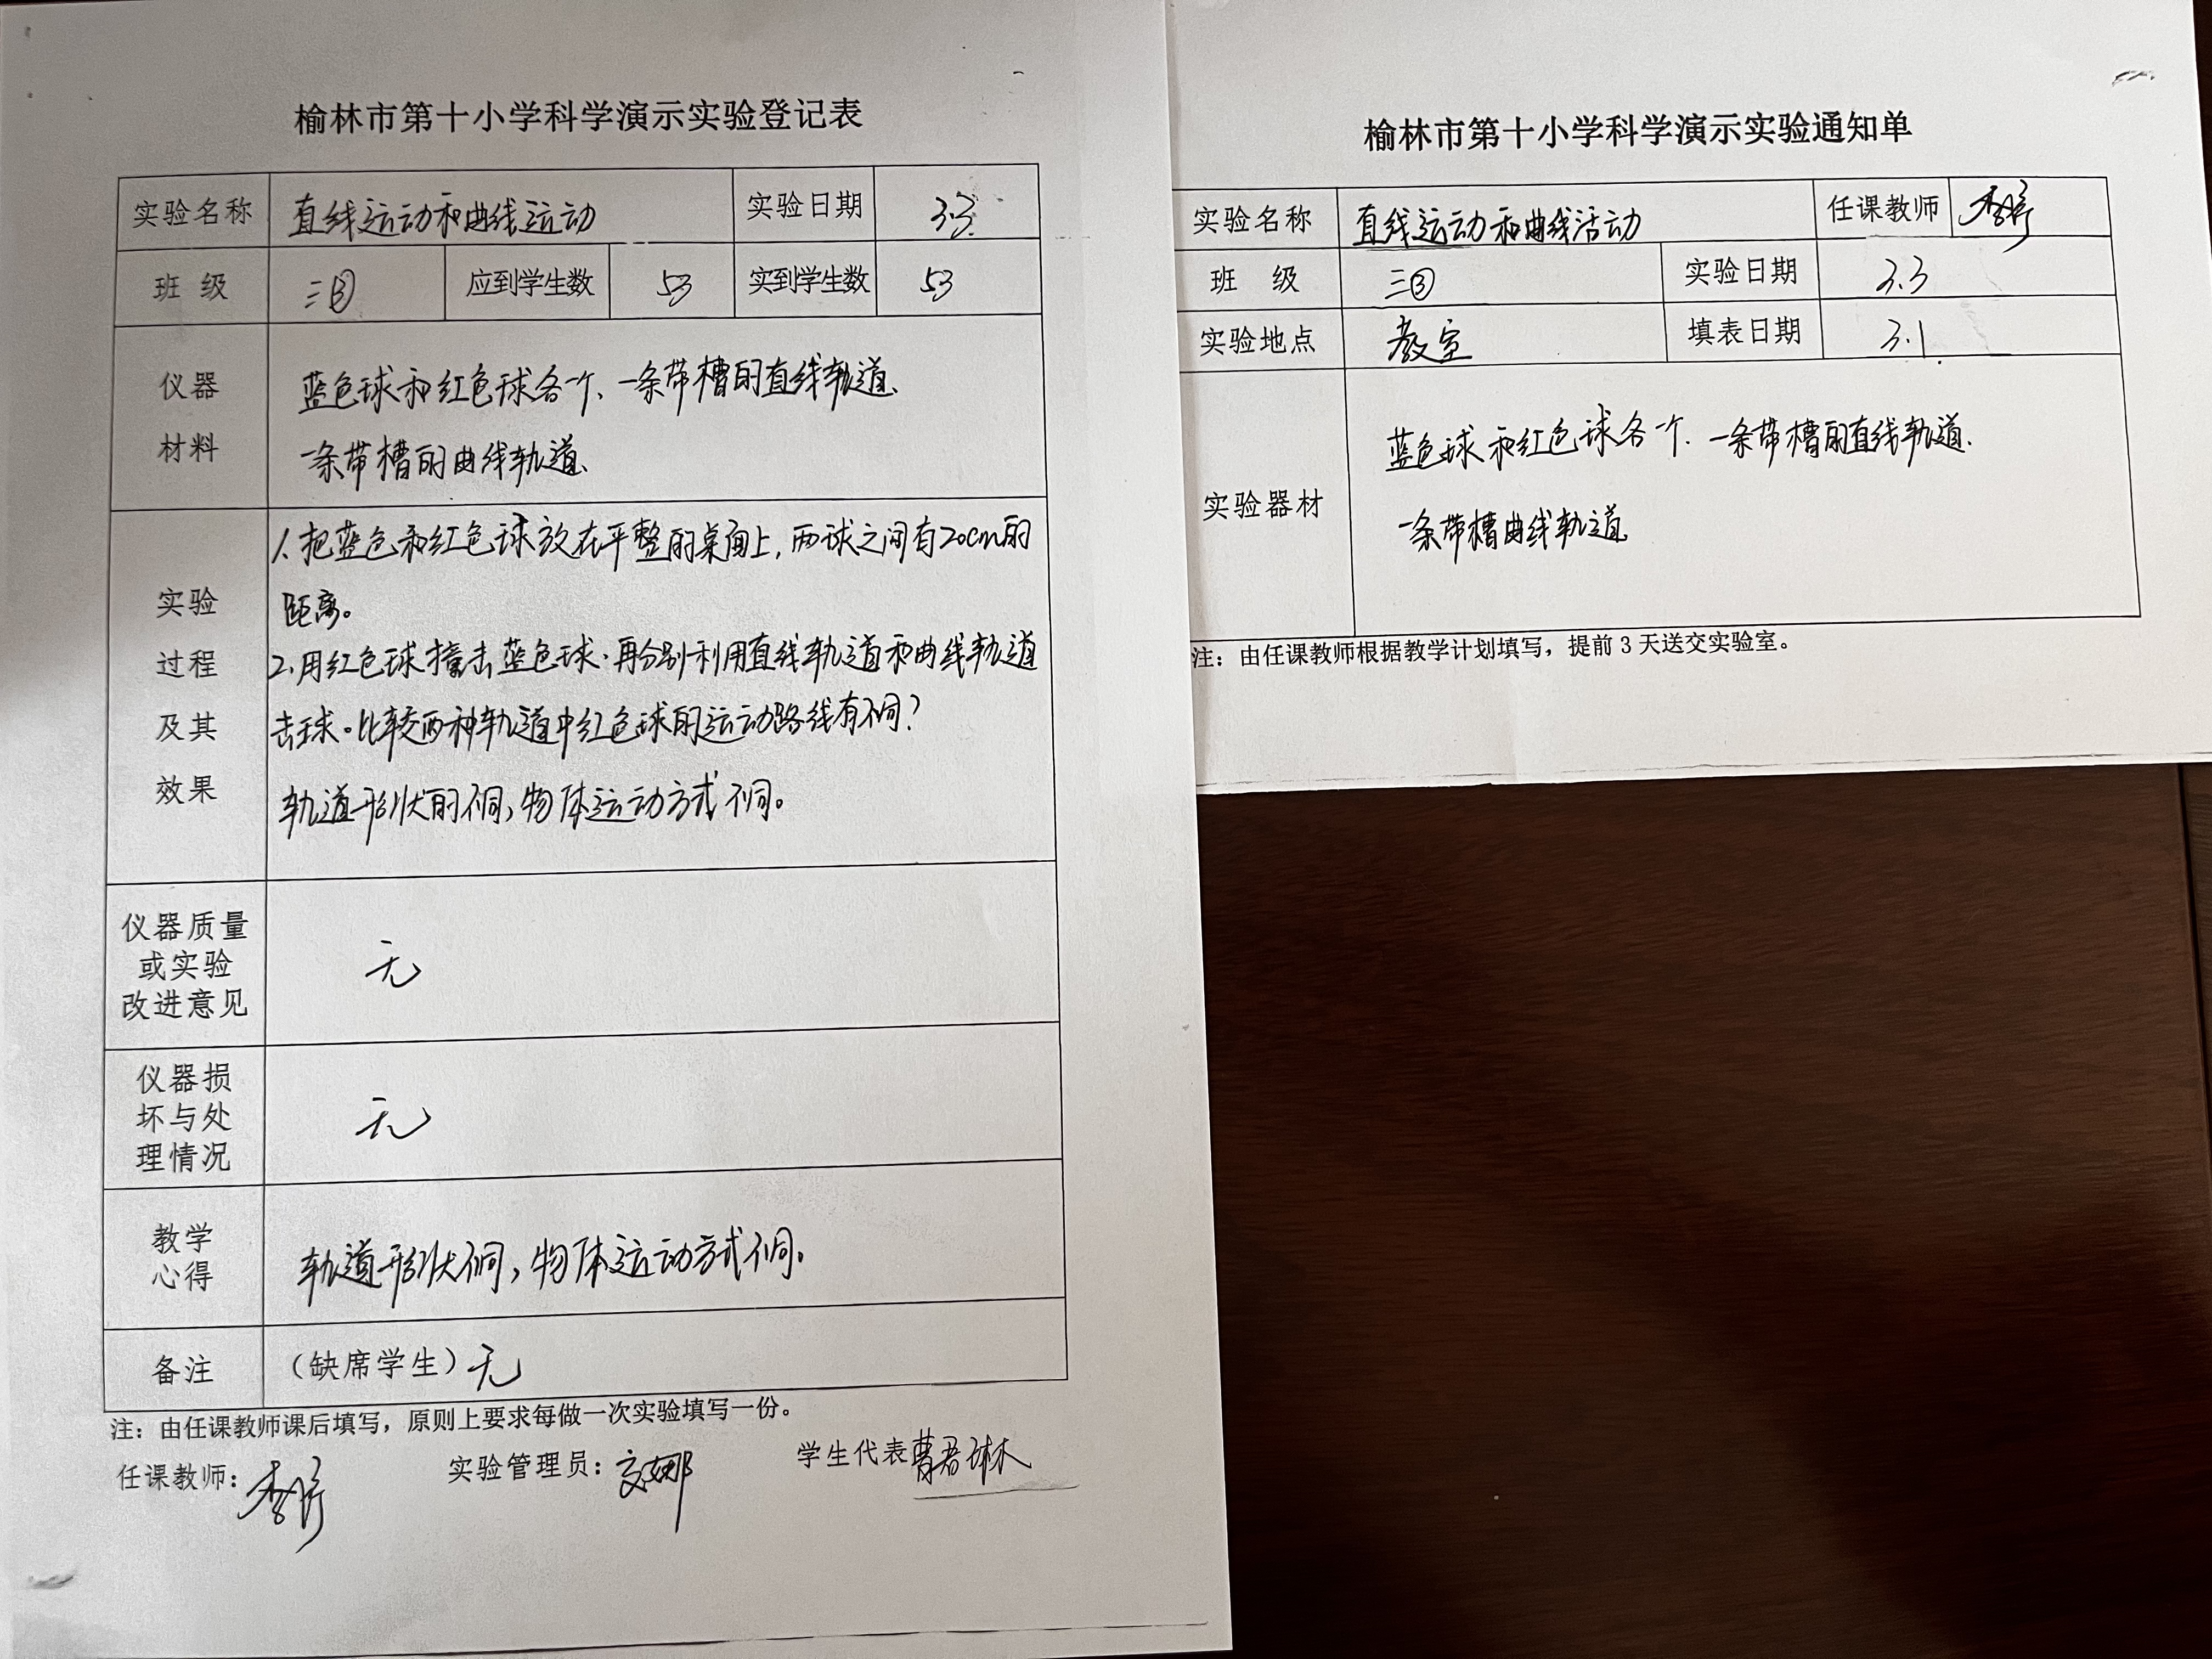 榆林市第十小学科学演示实验登记表
实验名称 直线运动和曲线运动 实验日期 3.3
班 级 三③ 应到学生数 53 实到学生数 53
仪器
材料
蓝色球和红色球各一个、一条带槽的直线轨道、
一条带槽的曲线轨道、
实验
过程
及其
效果
1、把蓝色和红色球放在平整的桌面上，两球之间有20cm的
距离。
2、用红色球撞击蓝色球.再分别利用直线轨道和曲线轨道
击球。比较两种轨道中红色球的运动路线有不同？
轨道形状的不同，物体运动方式不同。
仪器质量
或实验
改进意见
无
仪器损
坏与处
理情况
无
教学
心得
轨道形状不同，物体运动方式不同。
备注 （缺席学生）无
注：由任课教师课后填写，原则上要求每做一次实验填写一份。
任课教师： 实验管理员： 学生代表 曹君琳
榆林市第十小学科学演示实验通知单
实验名称 直线运动和曲线活动 任课教师
班 级 三③ 实验日期 3.3
实验地点 教室 填表日期 3.1
实验器材
蓝色球和红色球各一个、一条带槽的直线轨道、
一条带槽曲线轨道
注：由任课教师根据教学计划填写，提前3天送交实验室。